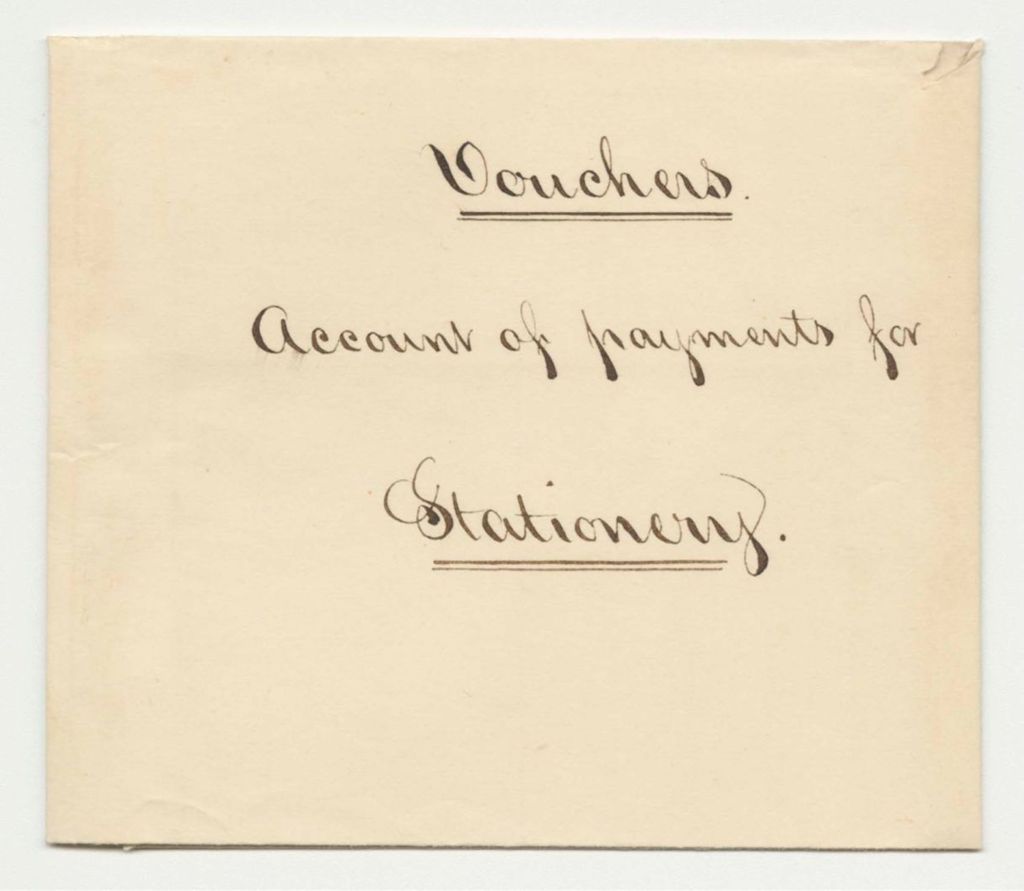 Vouchers.
Account of payments for
Stationery.